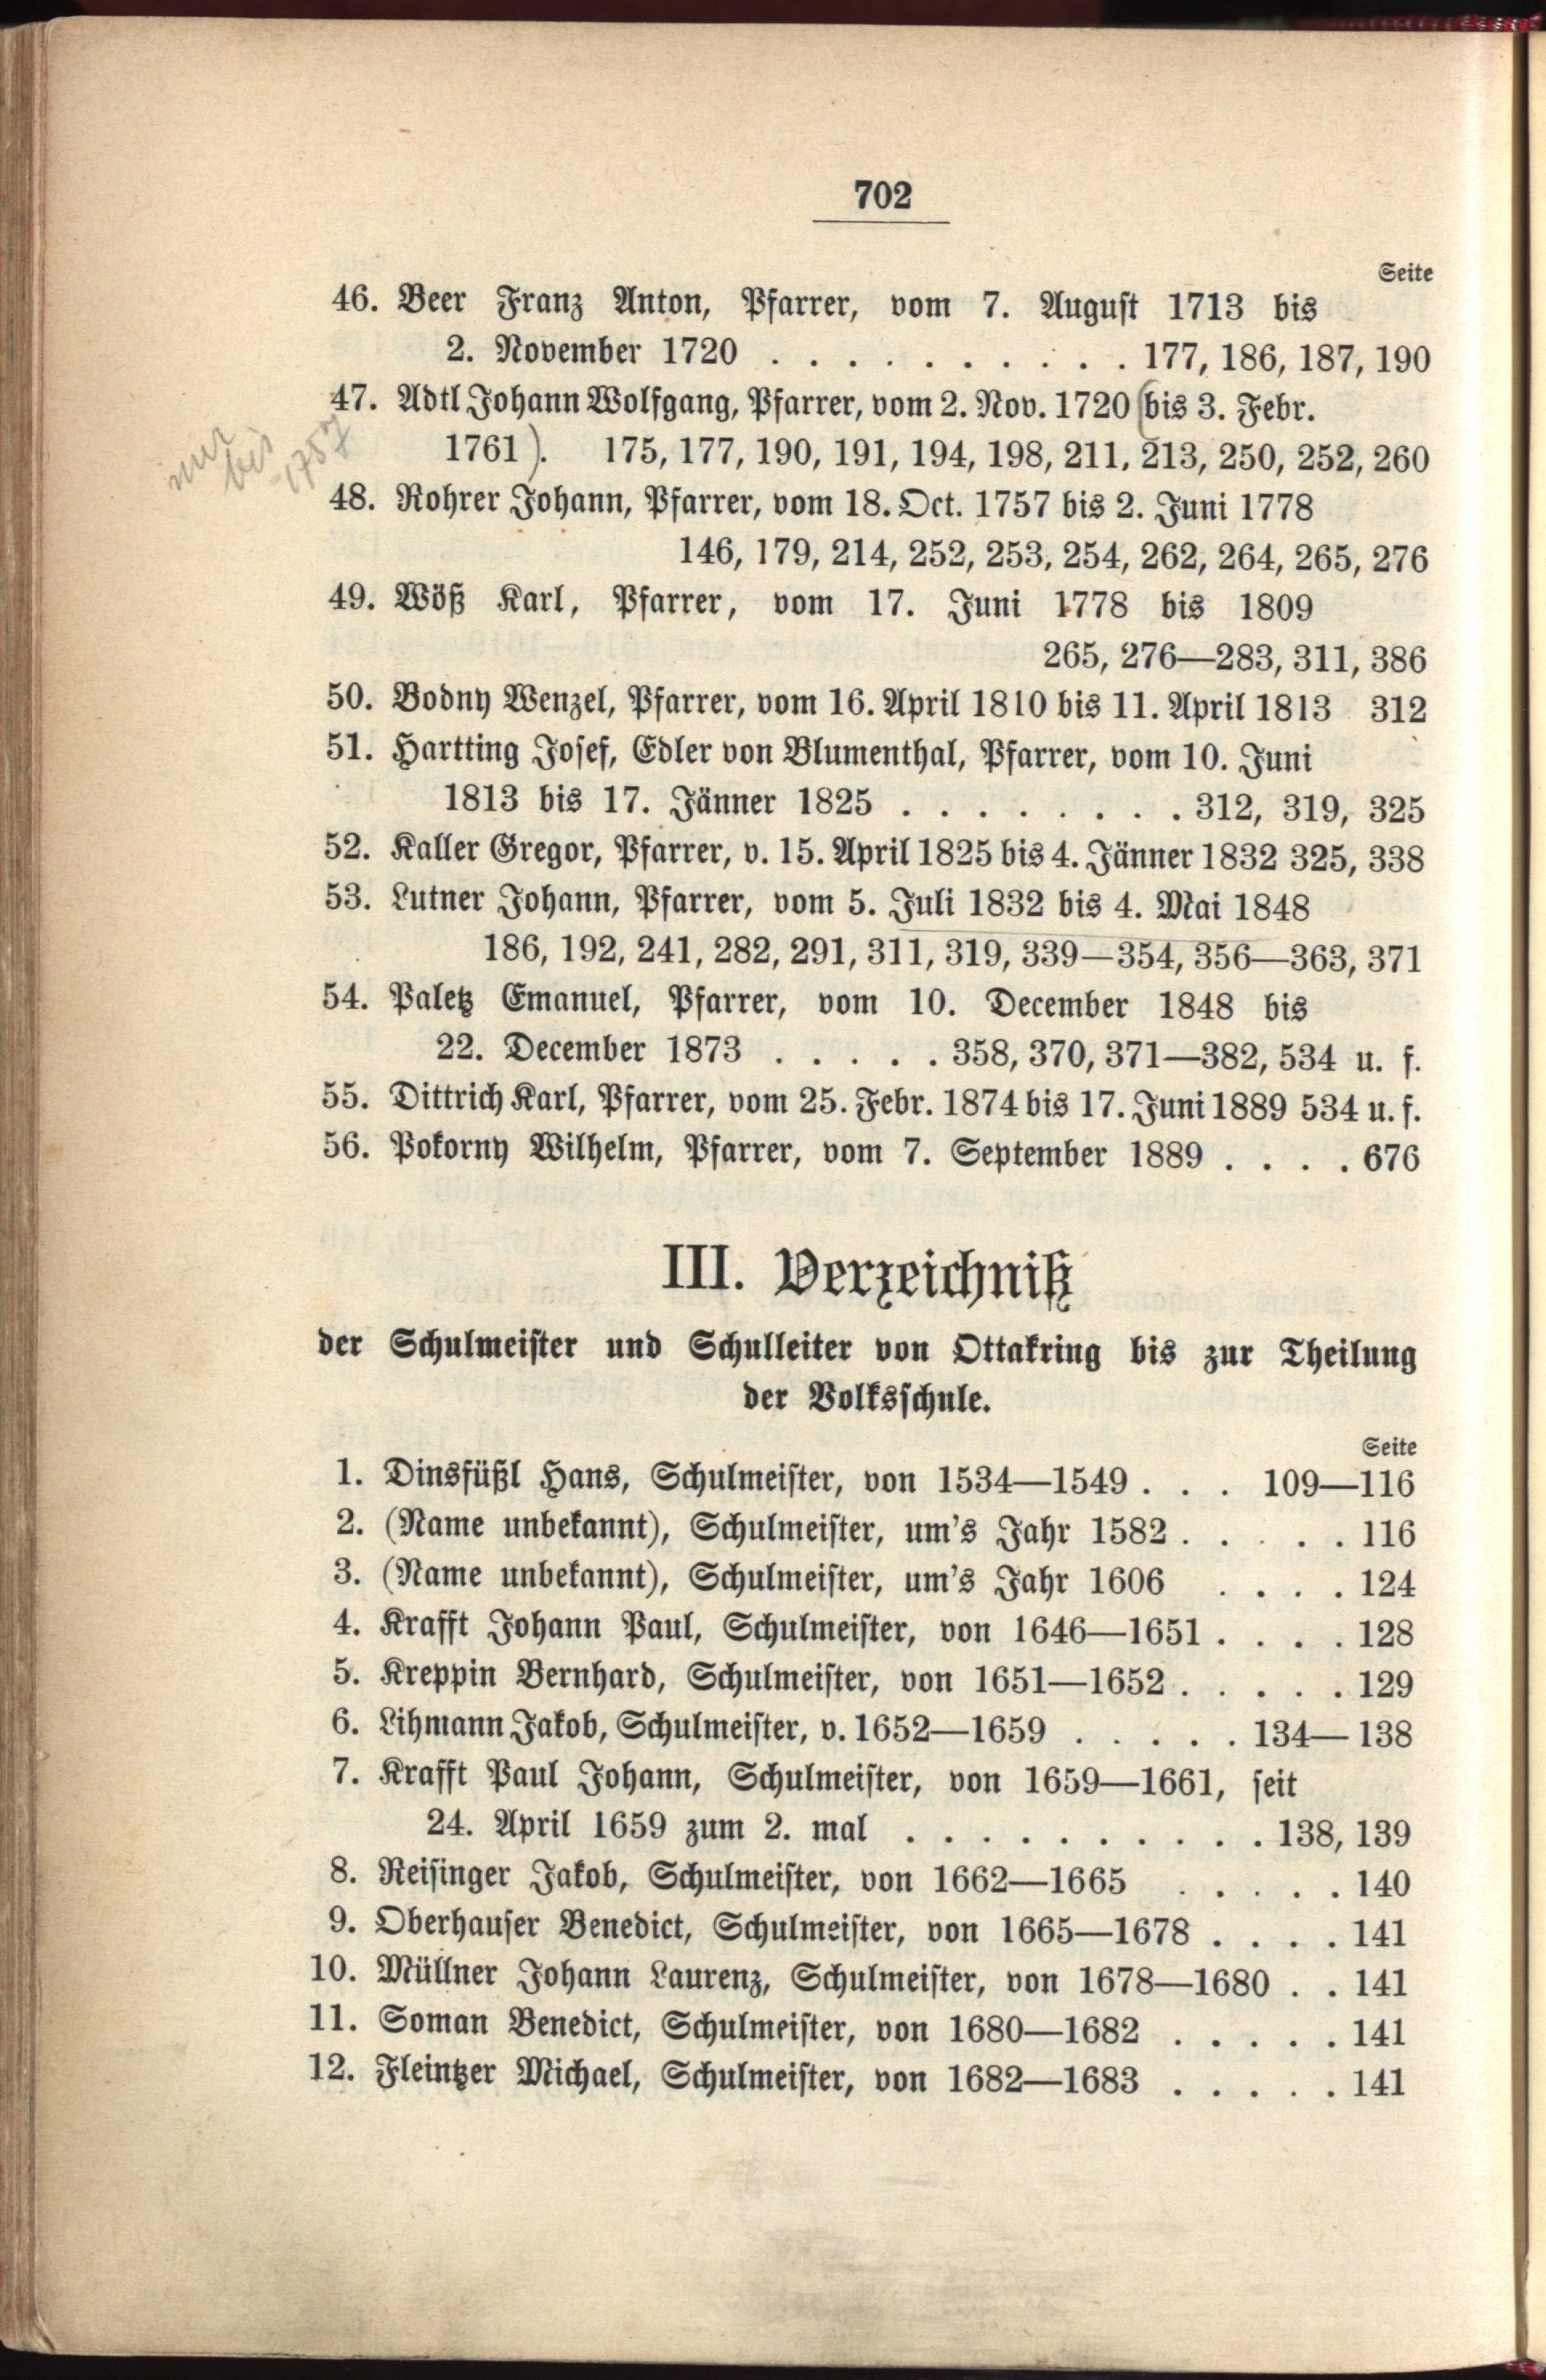 702
Seite
46. Beer Franz Anton, Pfarrer, vom 7. August 1713 bis
2. November 1720 . . . . . . . . . . 177, 186, 187, 190
47. Adtl Johann Wolfgang, Pfarrer, vom 2. Nov. 1720 (bis 3. Febr.
1761). 175, 177, 190, 191, 194, 198, 211, 213, 250, 252, 260
nur bis 1757
48. Rohrer Johann, Pfarrer, vom 18. Oct. 1757 bis 2. Juni 1778
146, 179, 214, 252, 253, 254, 262, 264, 265, 276
49. Wöß Karl, Pfarrer, vom 17. Juni 1778 bis 1809
265, 276—283, 311, 386
50. Bodny Wenzel, Pfarrer, vom 16. April 1810 bis 11. April 1813 312
51. Hartting Josef, Edler von Blumenthal, Pfarrer, vom 10. Juni
1813 bis 17. Jänner 1825 . . . . . . . . 312, 319, 325
52. Kaller Gregor, Pfarrer, v. 15. April 1825 bis 4. Jänner 1832 325, 338
53. Lutner Johann, Pfarrer, vom 5. Juli 1832 bis 4. Mai 1848
186, 192, 241, 282, 291, 311, 319, 339—354, 356—363, 371
54. Paletz Emanuel, Pfarrer, vom 10. December 1848 bis
22. December 1873 . . . . . 358, 370, 371—382, 534 u. f.
55. Dittrich Karl, Pfarrer, vom 25. Febr. 1874 bis 17. Juni 1889 534 u. f.
56. Pokorny Wilhelm, Pfarrer, vom 7. September 1889 . . . . 676
III. Verzeichniß
der Schulmeister und Schulleiter von Ottakring bis zur Theilung
der Volksschule.
Seite
1. Dinsfüßl Hans, Schulmeister, von 1534—1549 . . . 109—116
2. (Name unbekannt), Schulmeister, um's Jahr 1582 . . . . . 116
3. (Name unbekannt), Schulmeister, um's Jahr 1606 . . . . 124
4. Krafft Johann Paul, Schulmeister, von 1646—1651 . . . . 128
5. Kreppin Bernhard, Schulmeister, von 1651—1652 . . . . . 129
6. Lihmann Jakob, Schulmeister, v. 1652—1659 . . . . . 134—138
7. Krafft Paul Johann, Schulmeister, von 1659—1661, seit
24. April 1659 zum 2. mal . . . . . . . . . . 138, 139
8. Reisinger Jakob, Schulmeister, von 1662—1665 . . . . . 140
9. Oberhauser Benedict, Schulmeister, von 1665—1678 . . . . 141
10. Müllner Johann Laurenz, Schulmeister, von 1678—1680 . . 141
11. Soman Benedict, Schulmeister, von 1680—1682 . . . . . 141
12. Fleintzer Michael, Schulmeister, von 1682—1683 . . . . . 141